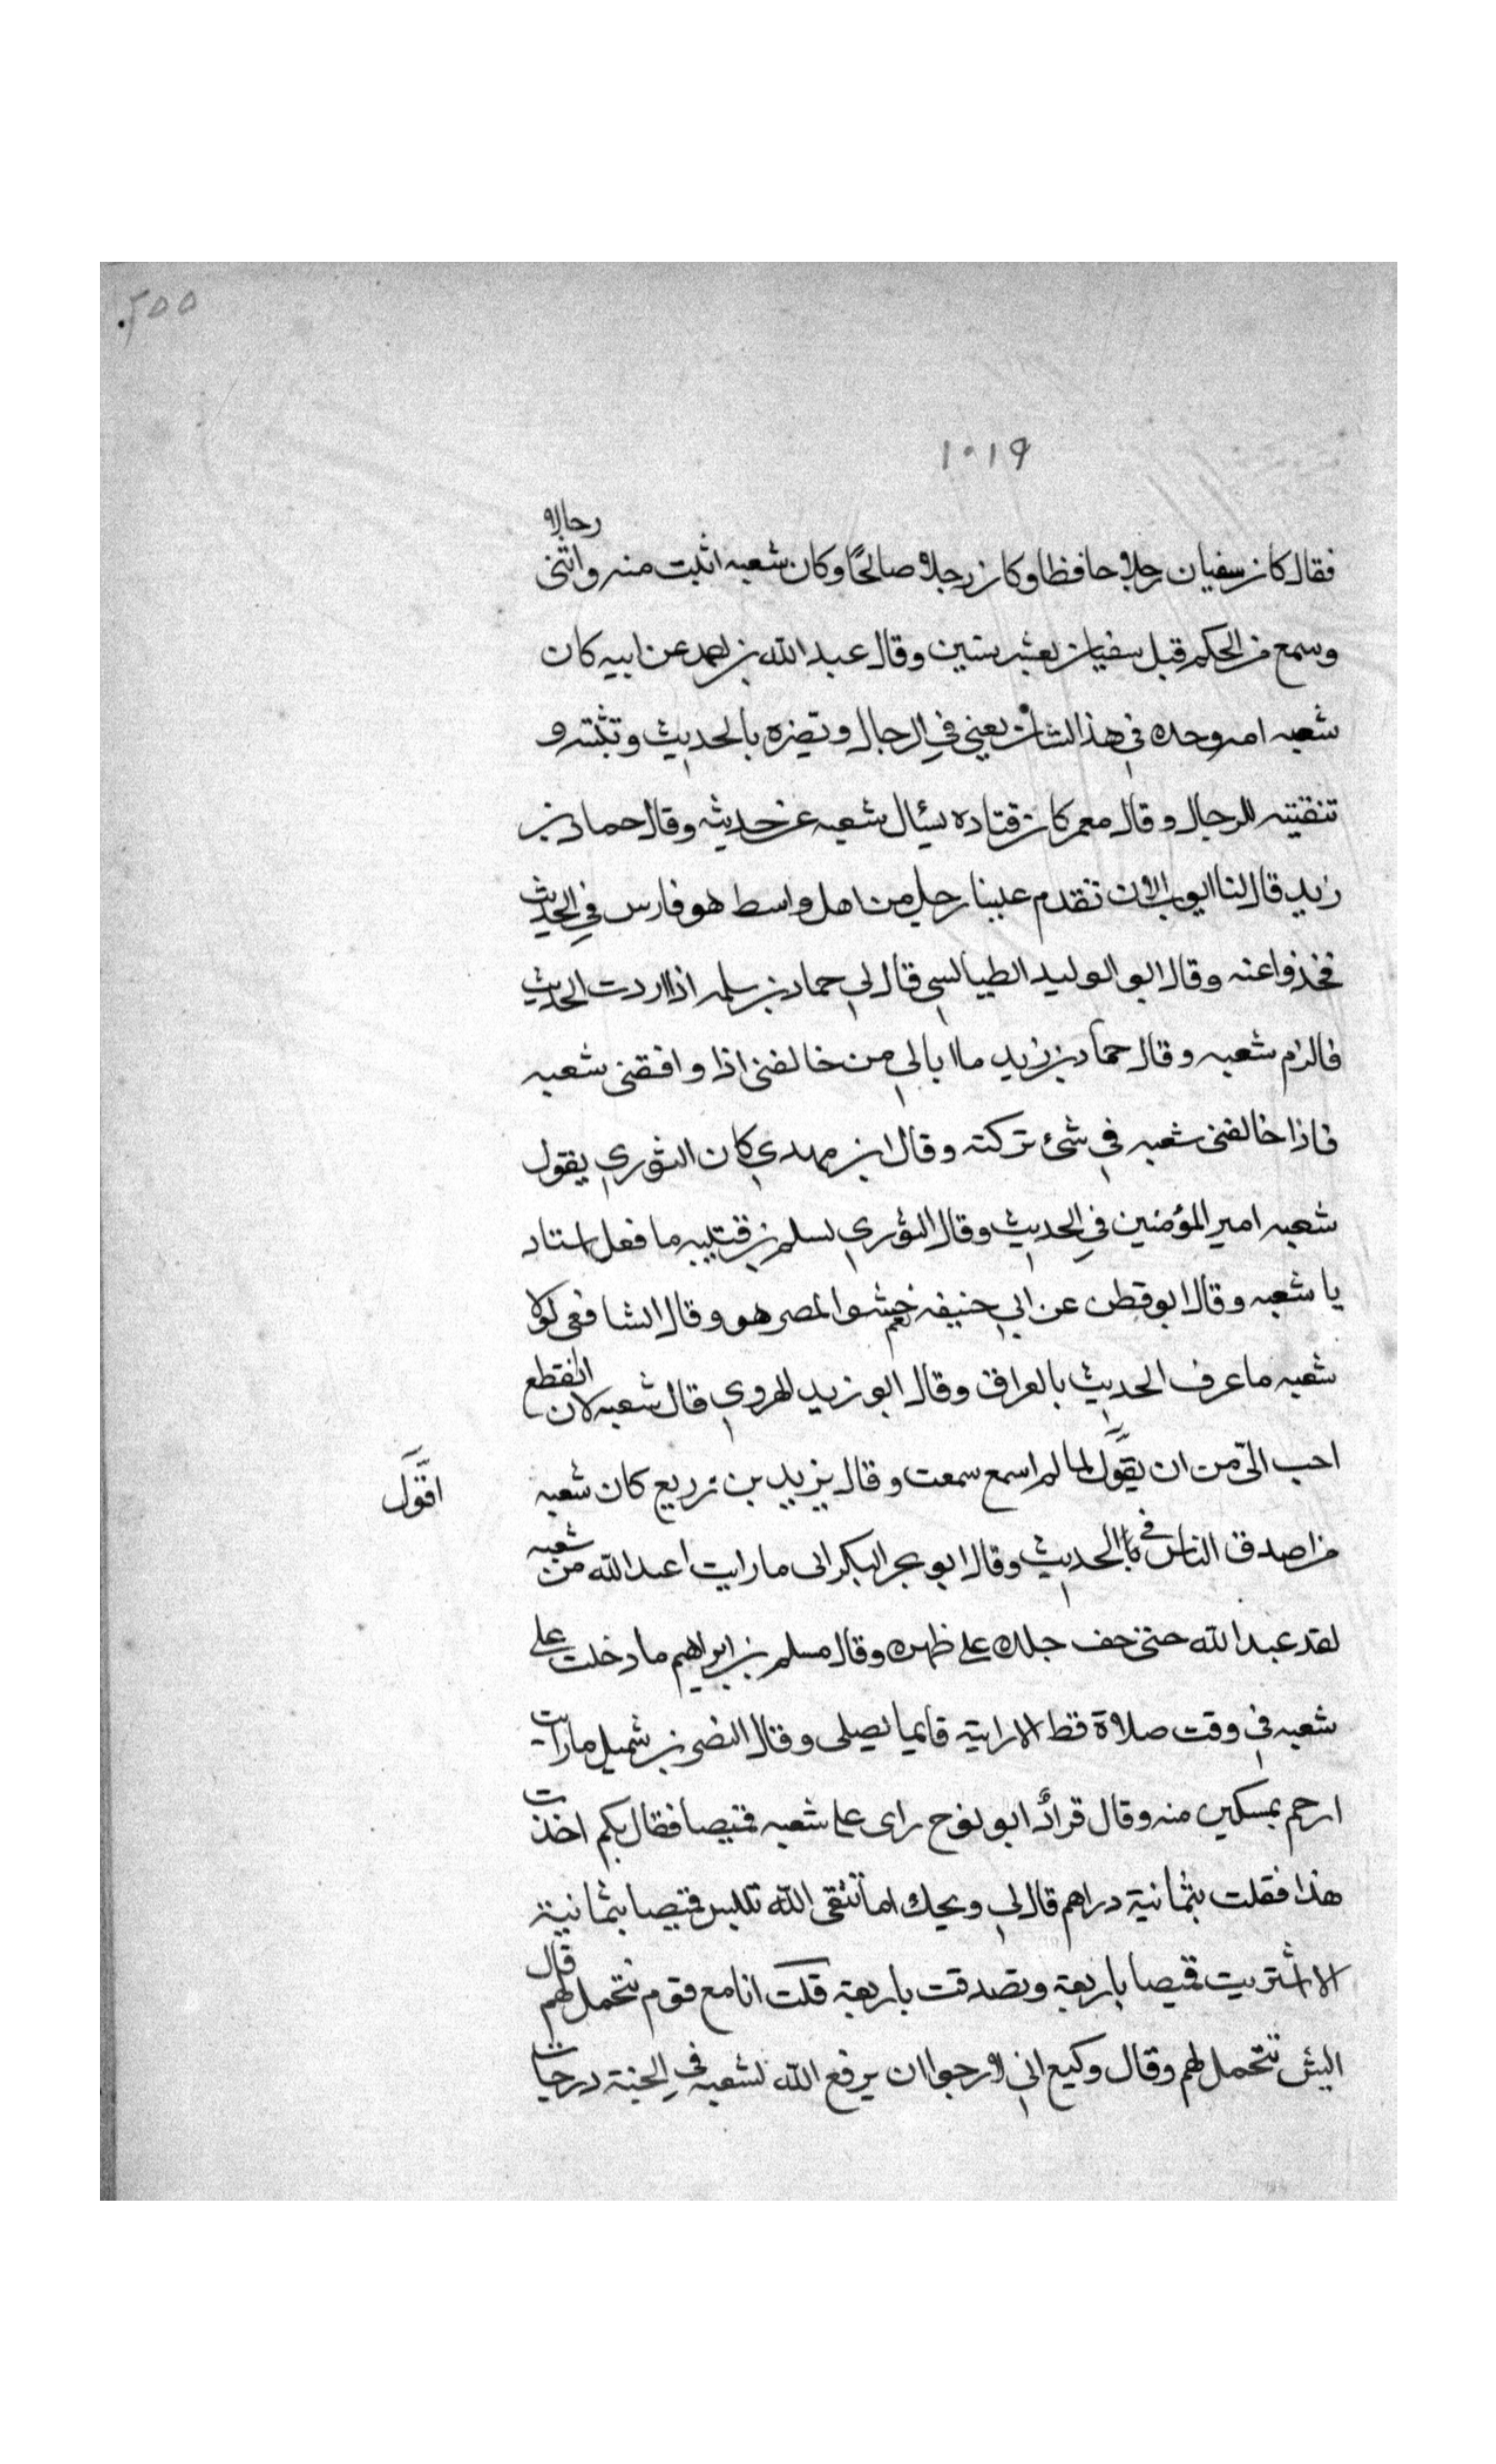 ٢٥٥
١٠١٩
فقال كان سفيان رجلا حافظا وكان رجلا صالحا وكان شعبه اثبت منه واتقى رجالا
وسمع من الحكم قبل سفيان بعشر سنين وقال عبد الله بن احمد عن ابيه كان
شعبه امه وحده في هذا الشان يعني في الرجال وبصره بالحديث وتثبته و
تنقيته للرجال وقال معمر كان قتاده يسئال شعبه عن حديثه وقال حماد بن
زيد قال لنا ايوب الان تقدم علينا رجل من اهل واسط هو فارس في الحديث
فخذوا عنه وقال ابو الوليد الطيالسي قال لي حماد بن سلمه اذا اردت الحديث
فالزام شعبه وقال حماد بن زيد ما ابالي من خالفني اذا وافقني شعبه
فاذا خالفني شعبه في شئ تركته وقال ابن مهدي كان الثوري يقول
شعبه امير المؤمنين في الحديث وقال الثوري لسلم بن قتيبه ما فعل استاد
يا شعبه وقال ابو قطن عن ابي حنيفه نعم حشو المصر هو وقال الشافعي لولا
شعبه ما عرف الحديث بالعراق وقال ابو زيد الهروي قال شعبه لان انقطع
احب الي من ان يقول لما لم اسمع سمعت وقال يزيد بن زريع كان شعبه
اقول
من اصدق الناس في الحديث وقال ابو بحر البكراوى ما رايت اعبد الله من شعبه
لقد عبد الله حتى جف جلده على ظهره وقال مسلم بن ابراهيم ما دخلت على
شعبه في وقت صلاة قط الا رايته قايما يصلي وقال النضر بن شميل ما رايت
ارحم بمسكين منه وقال قراد ابو نوح راى على شعبه قميصا فقال بكم اخذت
هذا فقلت بثمانية دراهم قال لي ويحك اما تتقي الله تلبس قميصا بثمانية
الا اشتريت قميصا باربعة وتصدقت باربعة قلت انا مع قوم نتحمل لهم قال
اليش نتحمل لهم وقال وكيع اني لارجوا ان يرفع الله لشعبه في الجنة درجات